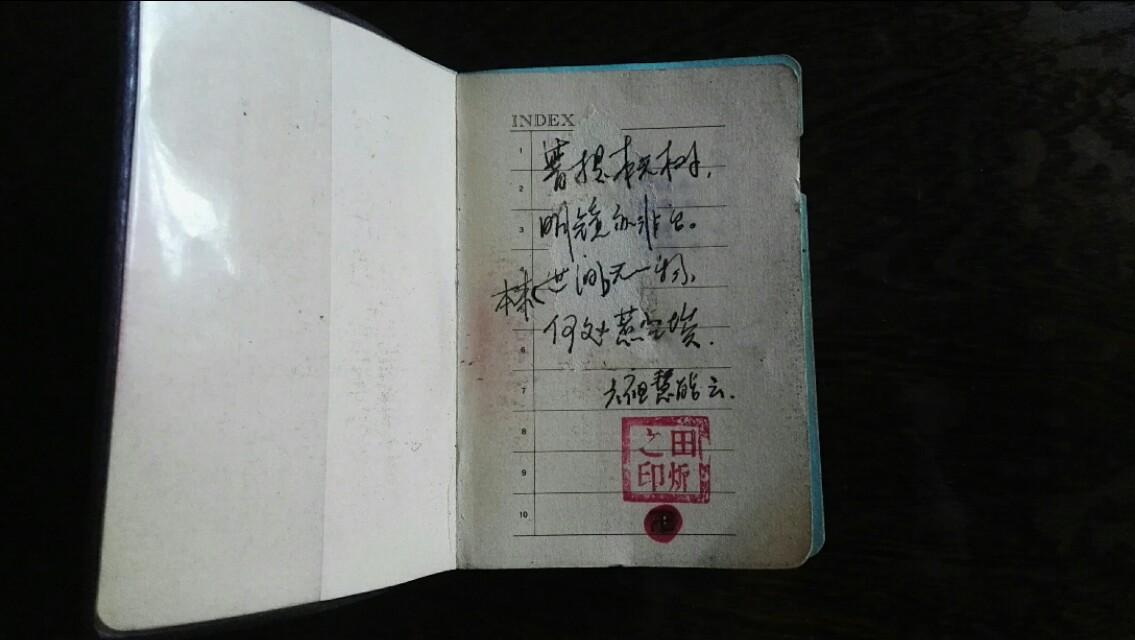 INDEX
1
菩提本无树,
2
3
明镜亦非台。
本来世间无一物,
何处惹尘埃.
6
7
六祖慧能云.
8
9
10
田炘之印
卍